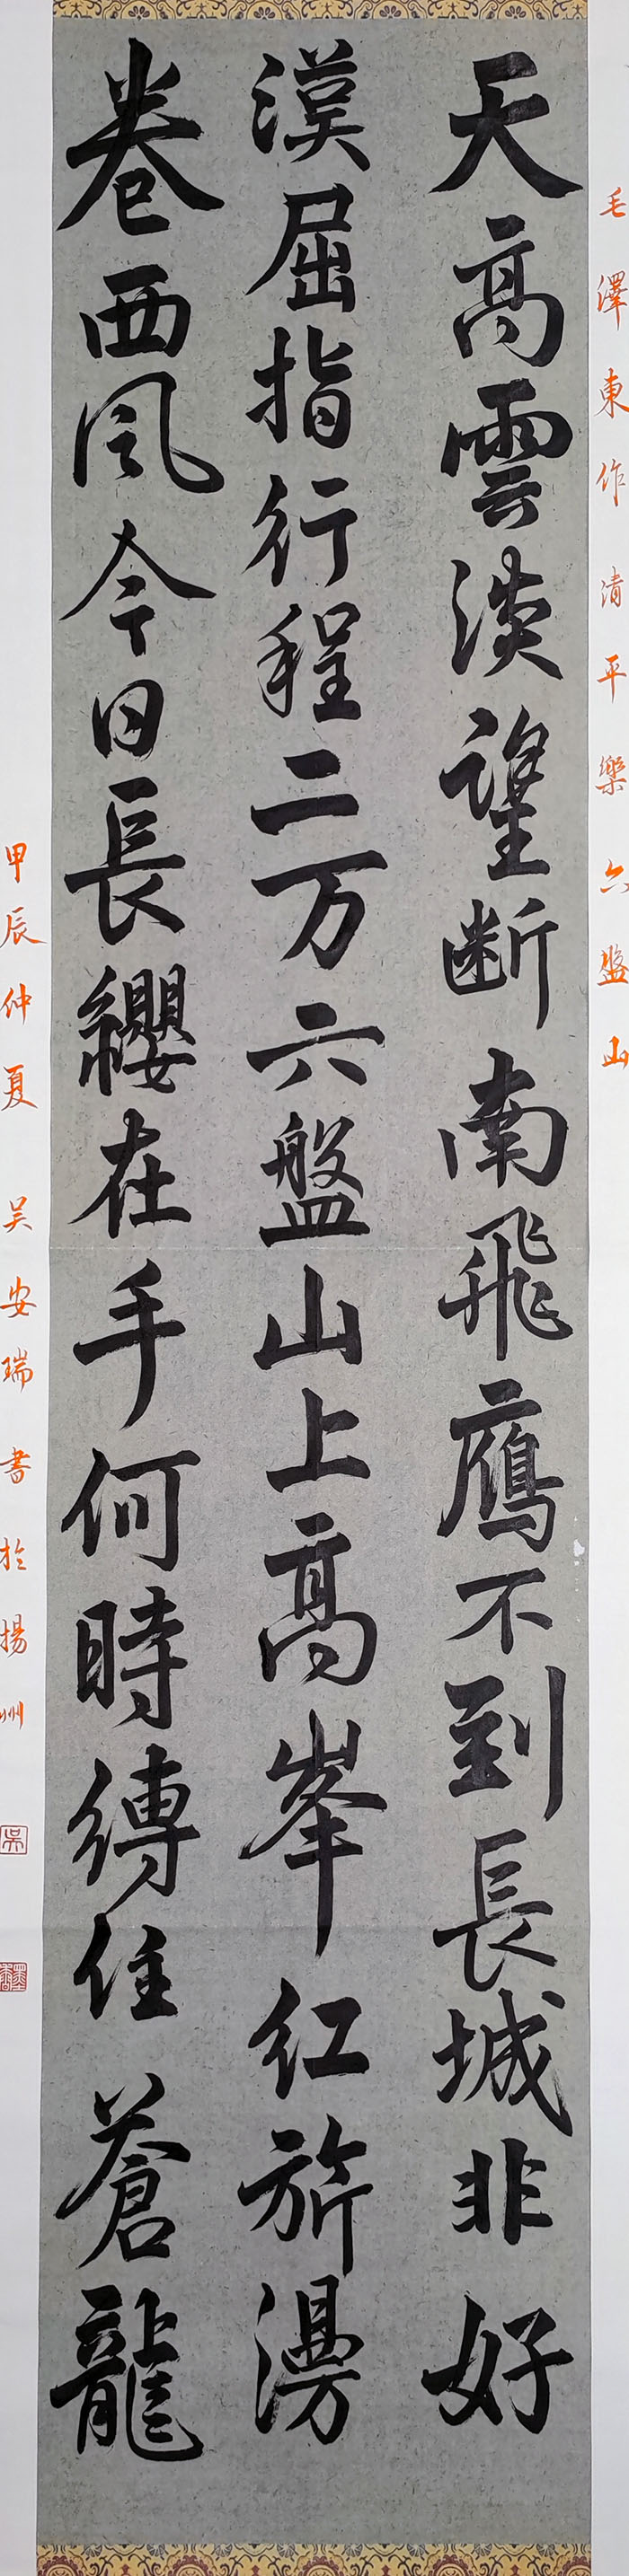 毛澤東作清平樂六盤山
天高雲淡望断南飛鷹不到長城非好
漢屈指行程二万六盤山上高峯红旂漫
卷西风今日長纓在手何時縛住蒼龍
甲辰仲夏吴安瑞書於揚州
吴